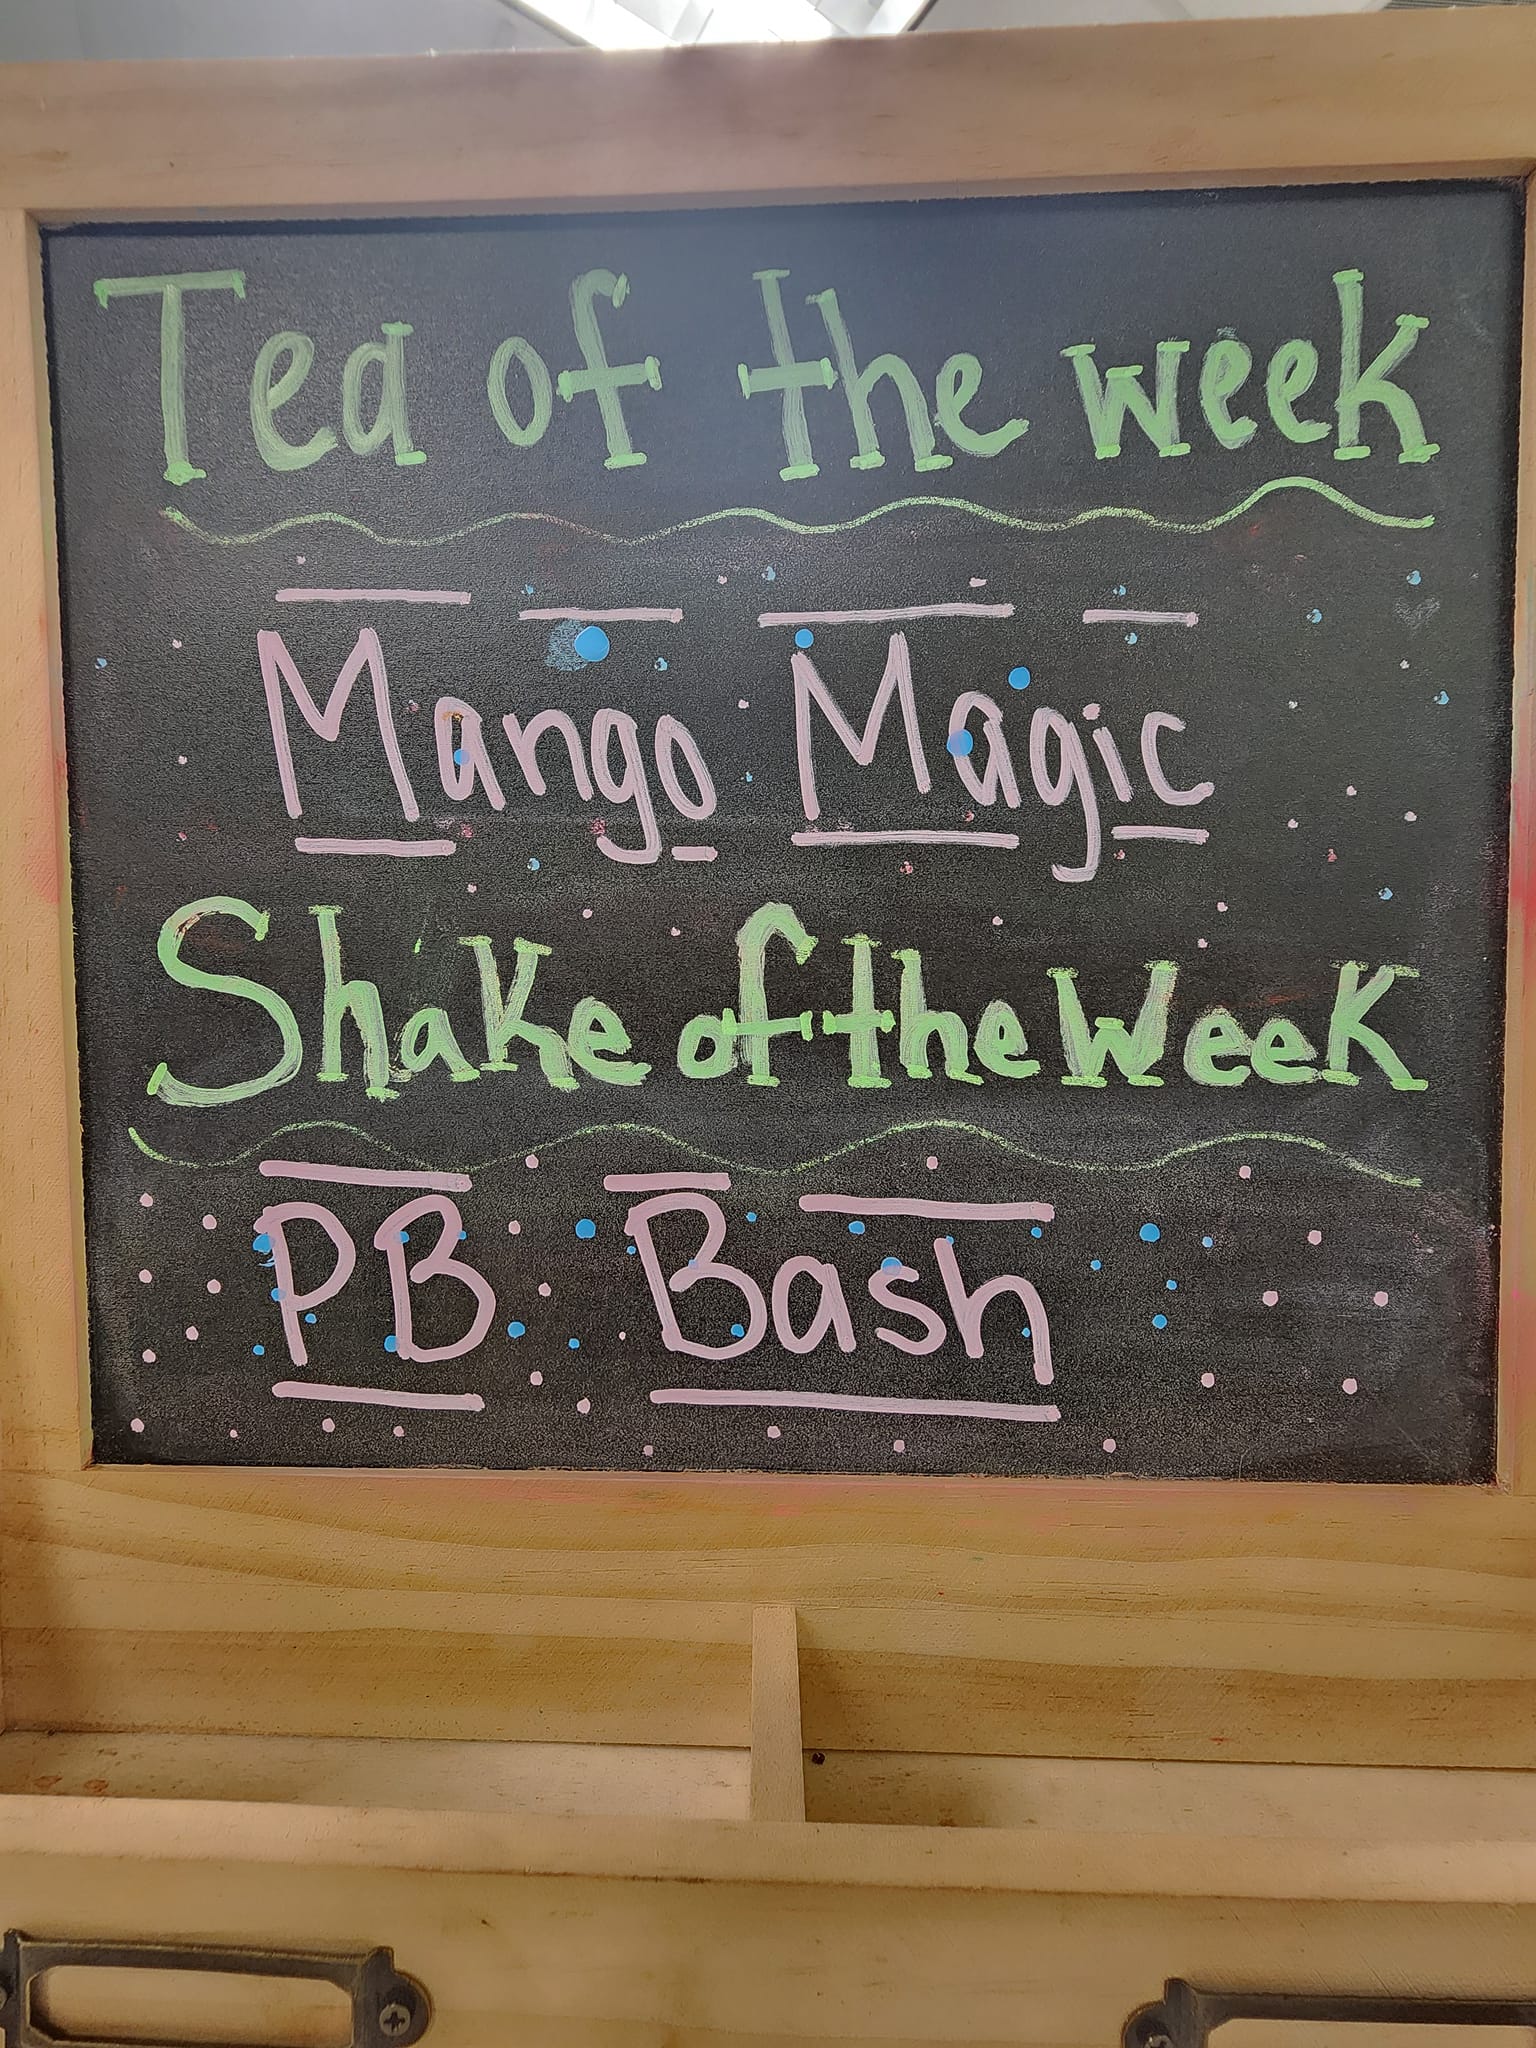 Tea of the week
Mango Magic
Shake of the Week
PB Bash